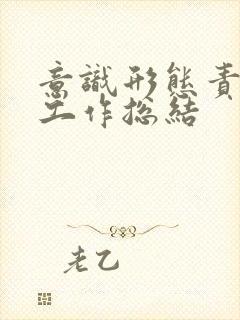 意識形態責
工作總結
老乙